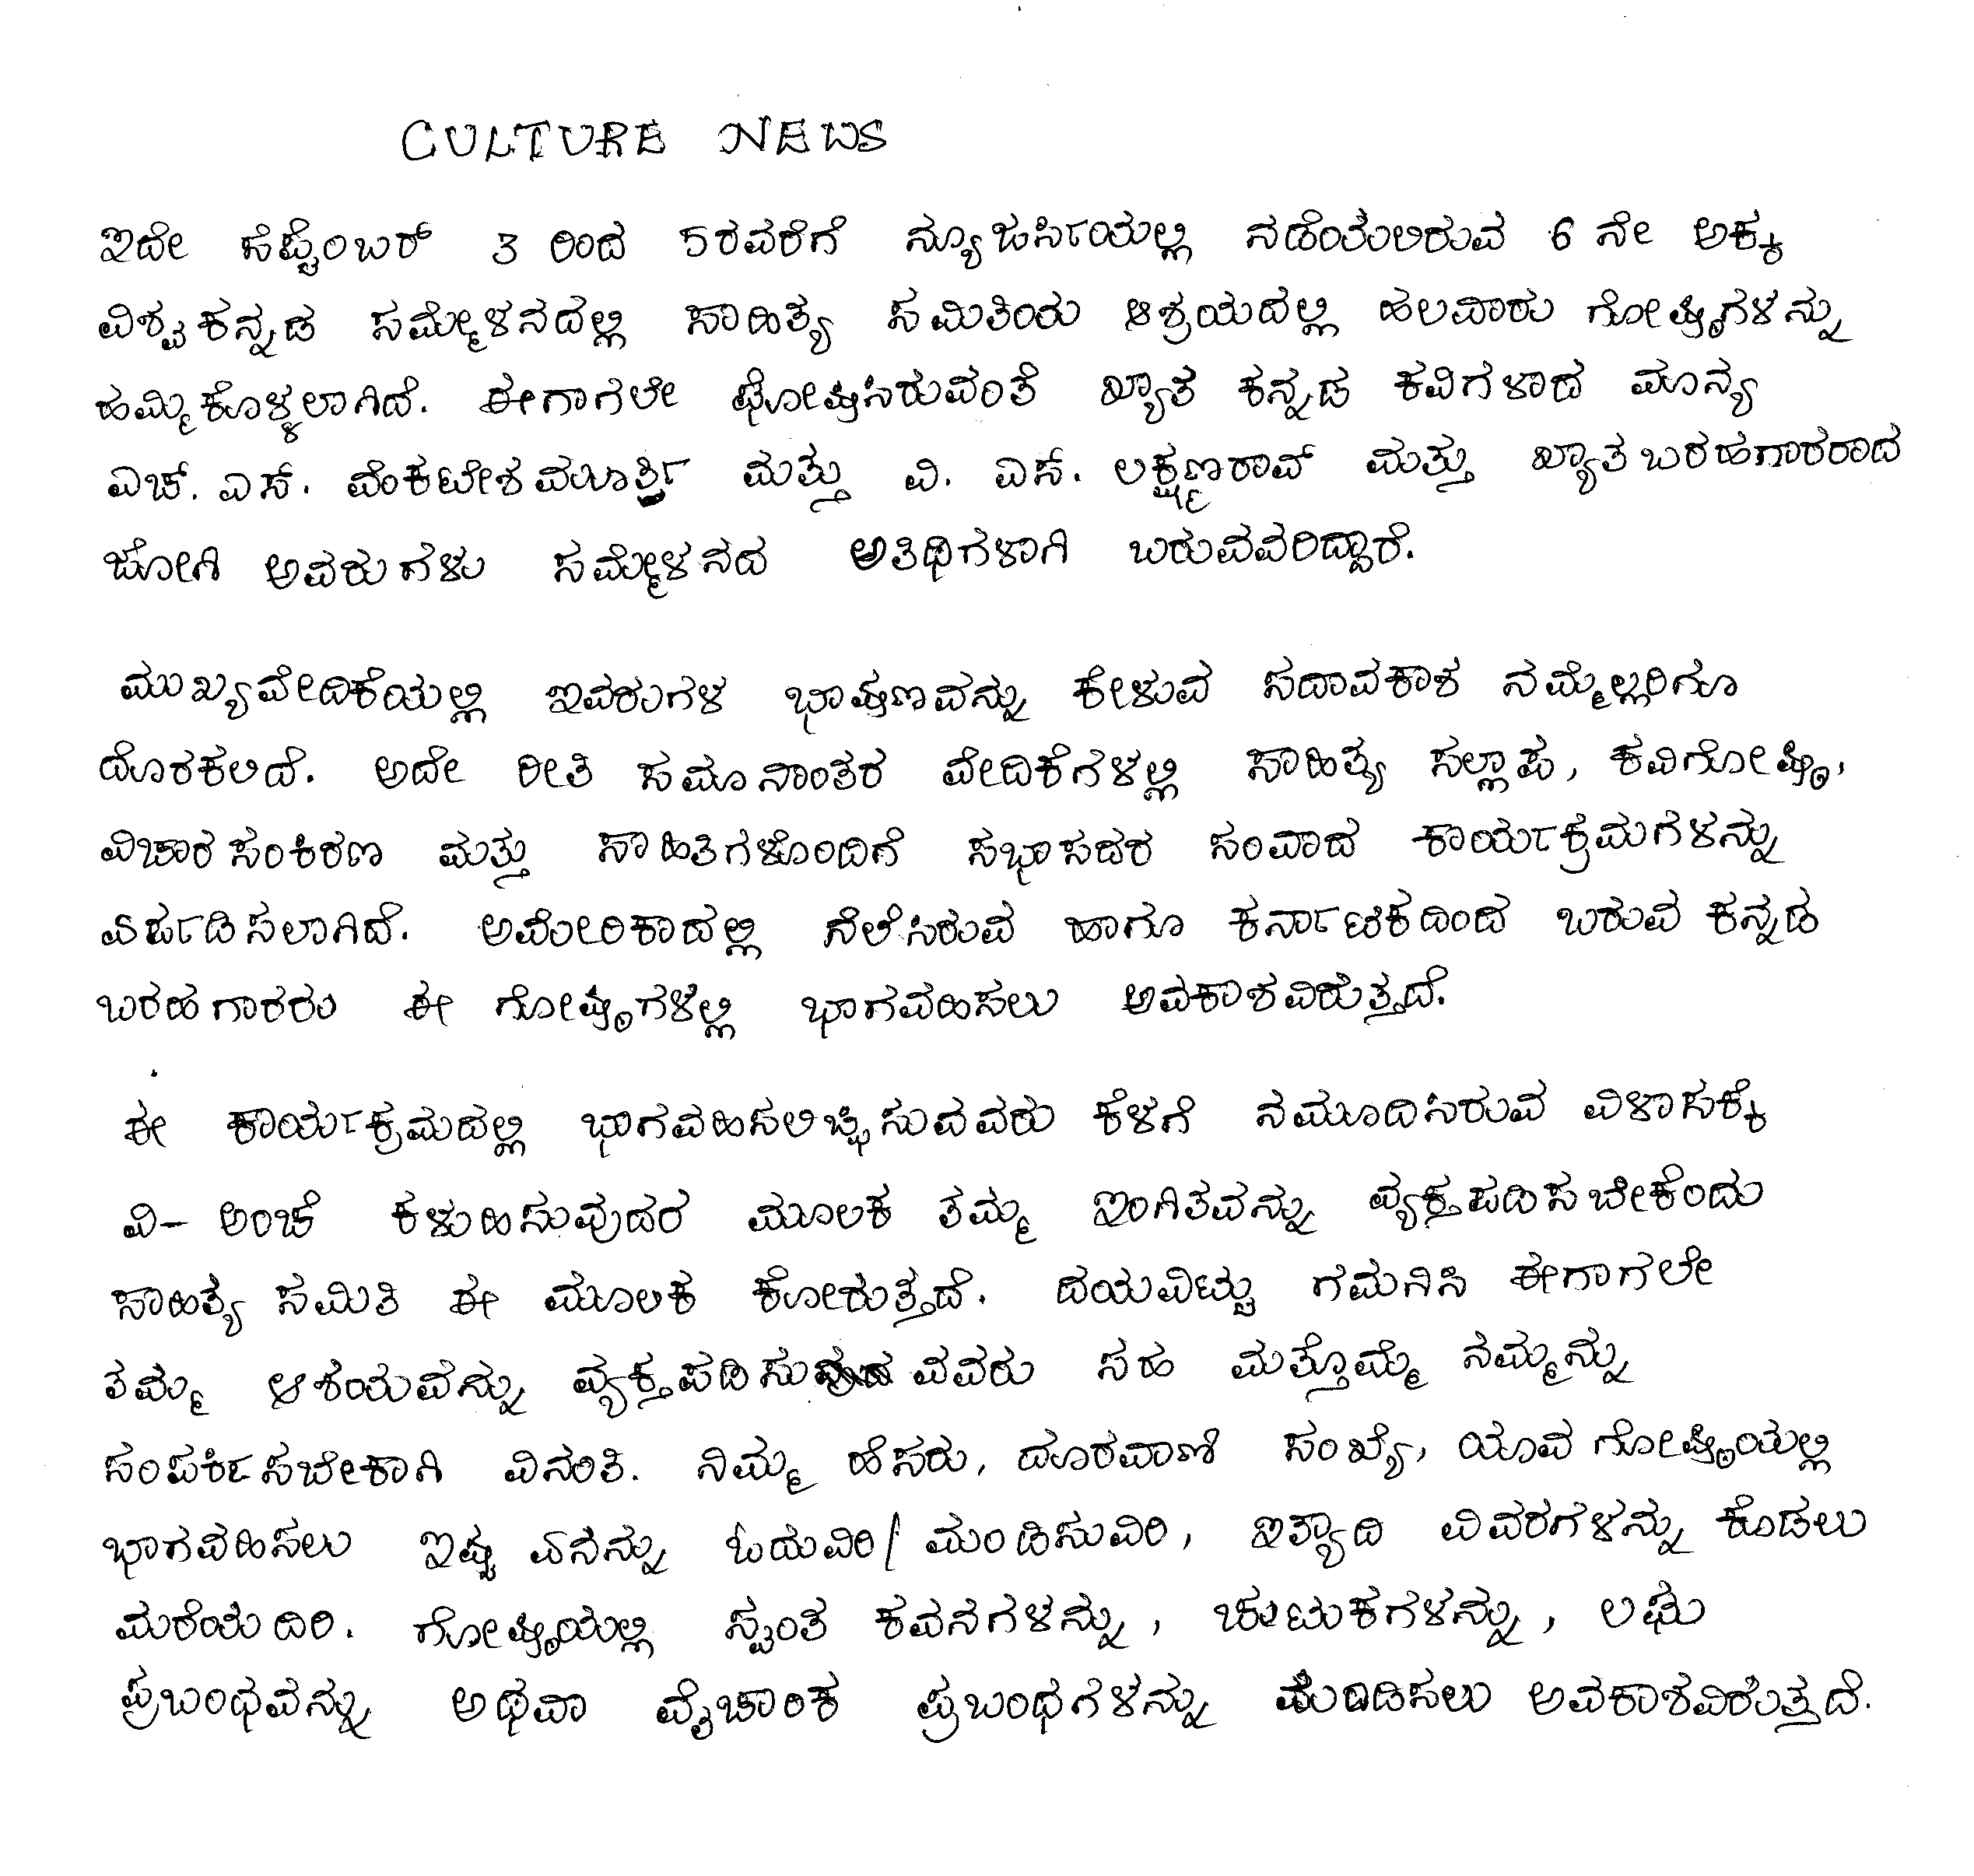 CULTURE NEWS
ಇದೇ ಸೆಪ್ಟೆಂಬರ್ 3 ರಿಂದ 5ರವರೆಗೆ ನ್ಯೂಜರ್ಸಿಯಲ್ಲಿ ನಡೆಯಲಿರುವ 6 ನೇ ಅಕ್ಕ
ವಿಶ್ವಕನ್ನಡ ಸಮ್ಮೇಳನದಲ್ಲಿ ಸಾಹಿತ್ಯ ಸಮಿತಿಯ ಆಶ್ರಯದಲ್ಲಿ ಹಲವಾರು ಗೋಷ್ಠಿಗಳನ್ನು
ಹಮ್ಮಿಕೊಳ್ಳಲಾಗಿದೆ. ಈಗಾಗಲೇ ಘೋಷಿಸಿರುವಂತೆ ಖ್ಯಾತ ಕನ್ನಡ ಕವಿಗಳಾದ ಮಾನ್ಯ
ಎಚ್. ಎಸ್. ವೆಂಕಟೇಶಮೂರ್ತಿ ಮತ್ತು ಬಿ. ಎಸ್. ಲಕ್ಷ್ಮಣರಾವ್ ಮತ್ತು ಖ್ಯಾತ ಬರಹಗಾರರಾದ
ಜೋಗಿ ಅವರುಗಳು ಸಮ್ಮೇಳನದ ಅತಿಥಿಗಳಾಗಿ ಬರುವವರಿದ್ದಾರೆ.
ಮುಖ್ಯವೇದಿಕೆಯಲ್ಲಿ ಇವರುಗಳ ಭಾಷಣವನ್ನು ಕೇಳುವ ಸದಾವಕಾಶ ನಮ್ಮೆಲ್ಲರಿಗೂ
ದೊರಕಲಿದೆ. ಅದೇ ರೀತಿ ಸಮಾನಾಂತರ ವೇದಿಕೆಗಳಲ್ಲಿ ಸಾಹಿತ್ಯ ಸಲ್ಲಾಪ, ಕವಿಗೋಷ್ಠಿ,
ವಿಚಾರ ಸಂಕಿರಣ ಮತ್ತು ಸಾಹಿತಿಗಳೊಂದಿಗೆ ಸಭಾಸದರ ಸಂವಾದ ಕಾರ್ಯಕ್ರಮಗಳನ್ನು
ಏರ್ಪಡಿಸಲಾಗಿದೆ. ಅಮೇರಿಕಾದಲ್ಲಿ ನೆಲೆಸಿರುವ ಹಾಗೂ ಕರ್ನಾಟಕದಿಂದ ಬರುವ ಕನ್ನಡ
ಬರಹಗಾರರು ಈ ಗೋಷ್ಠಿಗಳಲ್ಲಿ ಭಾಗವಹಿಸಲು ಅವಕಾಶವಿರುತ್ತದೆ.
ಈ ಕಾರ್ಯಕ್ರಮದಲ್ಲಿ ಭಾಗವಹಿಸಲಿಚ್ಛಿಸುವವರು ಕೆಳಗೆ ನಮೂದಿಸಿರುವ ವಿಳಾಸಕ್ಕೆ
ವಿ- ಅಂಚೆ ಕಳುಹಿಸುವುದರ ಮೂಲಕ ತಮ್ಮ ಇಂಗಿತವನ್ನು ವ್ಯಕ್ತಪಡಿಸಬೇಕೆಂದು
ಸಾಹಿತ್ಯ ಸಮಿತಿ ಈ ಮೂಲಕ ಕೋರುತ್ತದೆ. ದಯವಿಟ್ಟು ಗಮನಿಸಿ ಈಗಾಗಲೇ
ತಮ್ಮ ಆಶಯವನ್ನು ವ್ಯಕ್ತಪಡಿಸು ವವರು ಸಹ ಮತ್ತೊಮ್ಮೆ ನಮ್ಮನ್ನು
ಸಂಪರ್ಕಿಸಬೇಕಾಗಿ ವಿನಂತಿ. ನಿಮ್ಮ ಹೆಸರು, ದೂರವಾಣಿ ಸಂಖ್ಯೆ, ಯಾವ ಗೋಷ್ಠಿಯಲ್ಲಿ
ಭಾಗವಹಿಸಲು ಇಷ್ಟ ಏನನ್ನು ಓದುವಿರಿ/ ಮಂಡಿಸುವಿರಿ, ಇತ್ಯಾದಿ ವಿವರಗಳನ್ನು ಕೊಡಲು
ಮರೆಯದಿರಿ. ಗೋಷ್ಠಿಯಲ್ಲಿ ಸ್ವಂತ ಕವನಗಳನ್ನು, ಚುಟುಕಗಳನ್ನು, ಲಘು
ಪ್ರಬಂಧವನ್ನು ಅಥವಾ ವೈಚಾರಿಕ ಪ್ರಬಂಧಗಳನ್ನು ಮಂಡಿಸಲು ಅವಕಾಶವಿರುತ್ತದೆ.